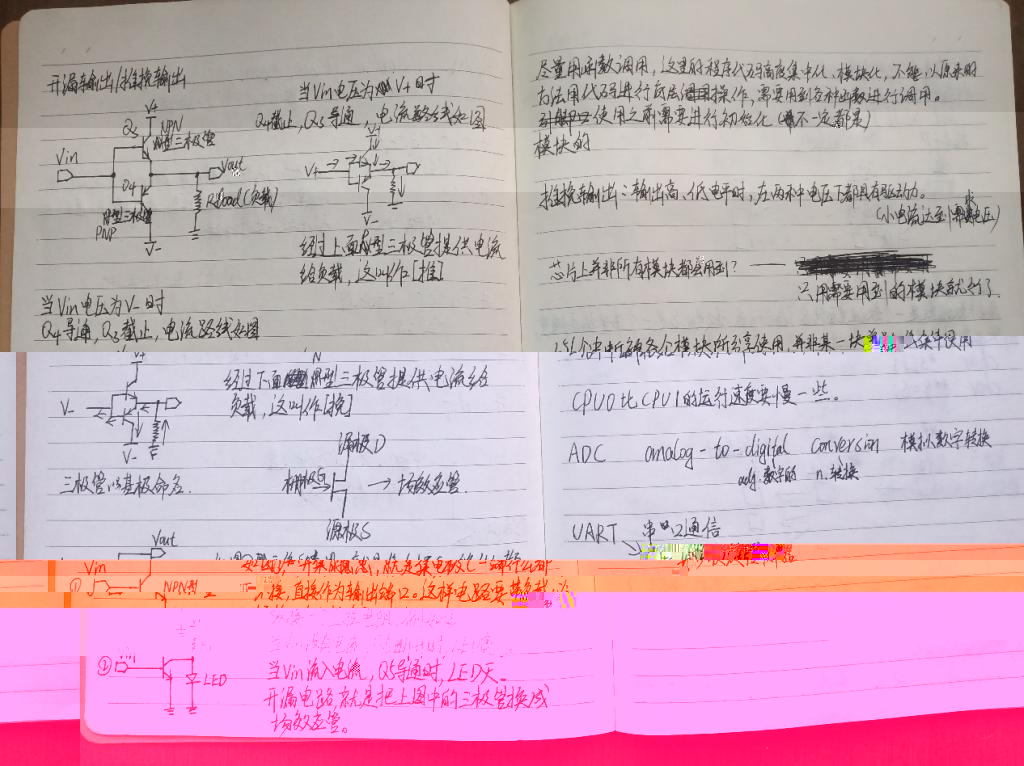 开漏输出/推挽输出
V+
Q3
NPN
型三极管
Vin
Vout
Q4
Rload(负载)
型三极管
PNP
V-
当Vin电压为V+时
Q4截止,Q3导通,电流路线如图
V+
V+
V-
经过上面型三极管提供电流
给负载,这叫作[推]
当Vin电压为V-时
Q4导通,Q3截止,电流路线如图
V+
V-
V-
经过下面型三极管提供电流给
负载,这叫作[挽]
三极管以基极命名.
漏极D
栅极G
→场效应管.
源极S
Vout
Vin
①
NPN型
接,直接作为输出端口。这样电路要
②
LED
当Vin流入电流,Q5导通时,LED灭.
开漏电路,就是把上图中的三极管换成
场效应管。
尽量用函数调用,这里的程序代码高度集中化、模块化,不能以原来的
方法用代码进行底层操作,需要用到各种函数进行调用。
使用之前需要进行初始化(不一定都是)
模块的
推挽输出:输出高、低电平时,在两种电压下都具有驱动力。
(小电流达到需求电压)
芯片上并非所有模块都会用到? ——
只用需要用到的模块就行了.
CPU0比CPU1的运行速度要慢一些。
ADC analog-to-digital conversion 模拟数字转换
adj.数字的 n.转换
UART 串口通信